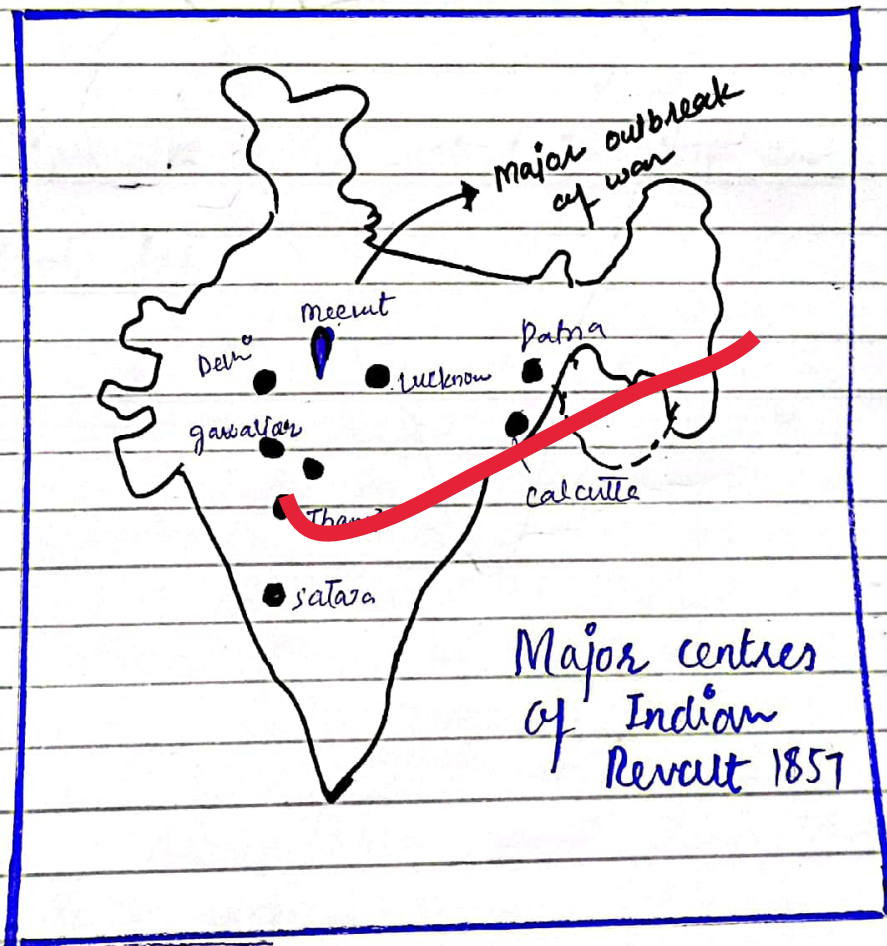 Major outbreak
of war
Meerut
Delhi
Lucknow
Patna
gawaliar
Calcutta
satara
Major centres
of Indian
Revolt 1857